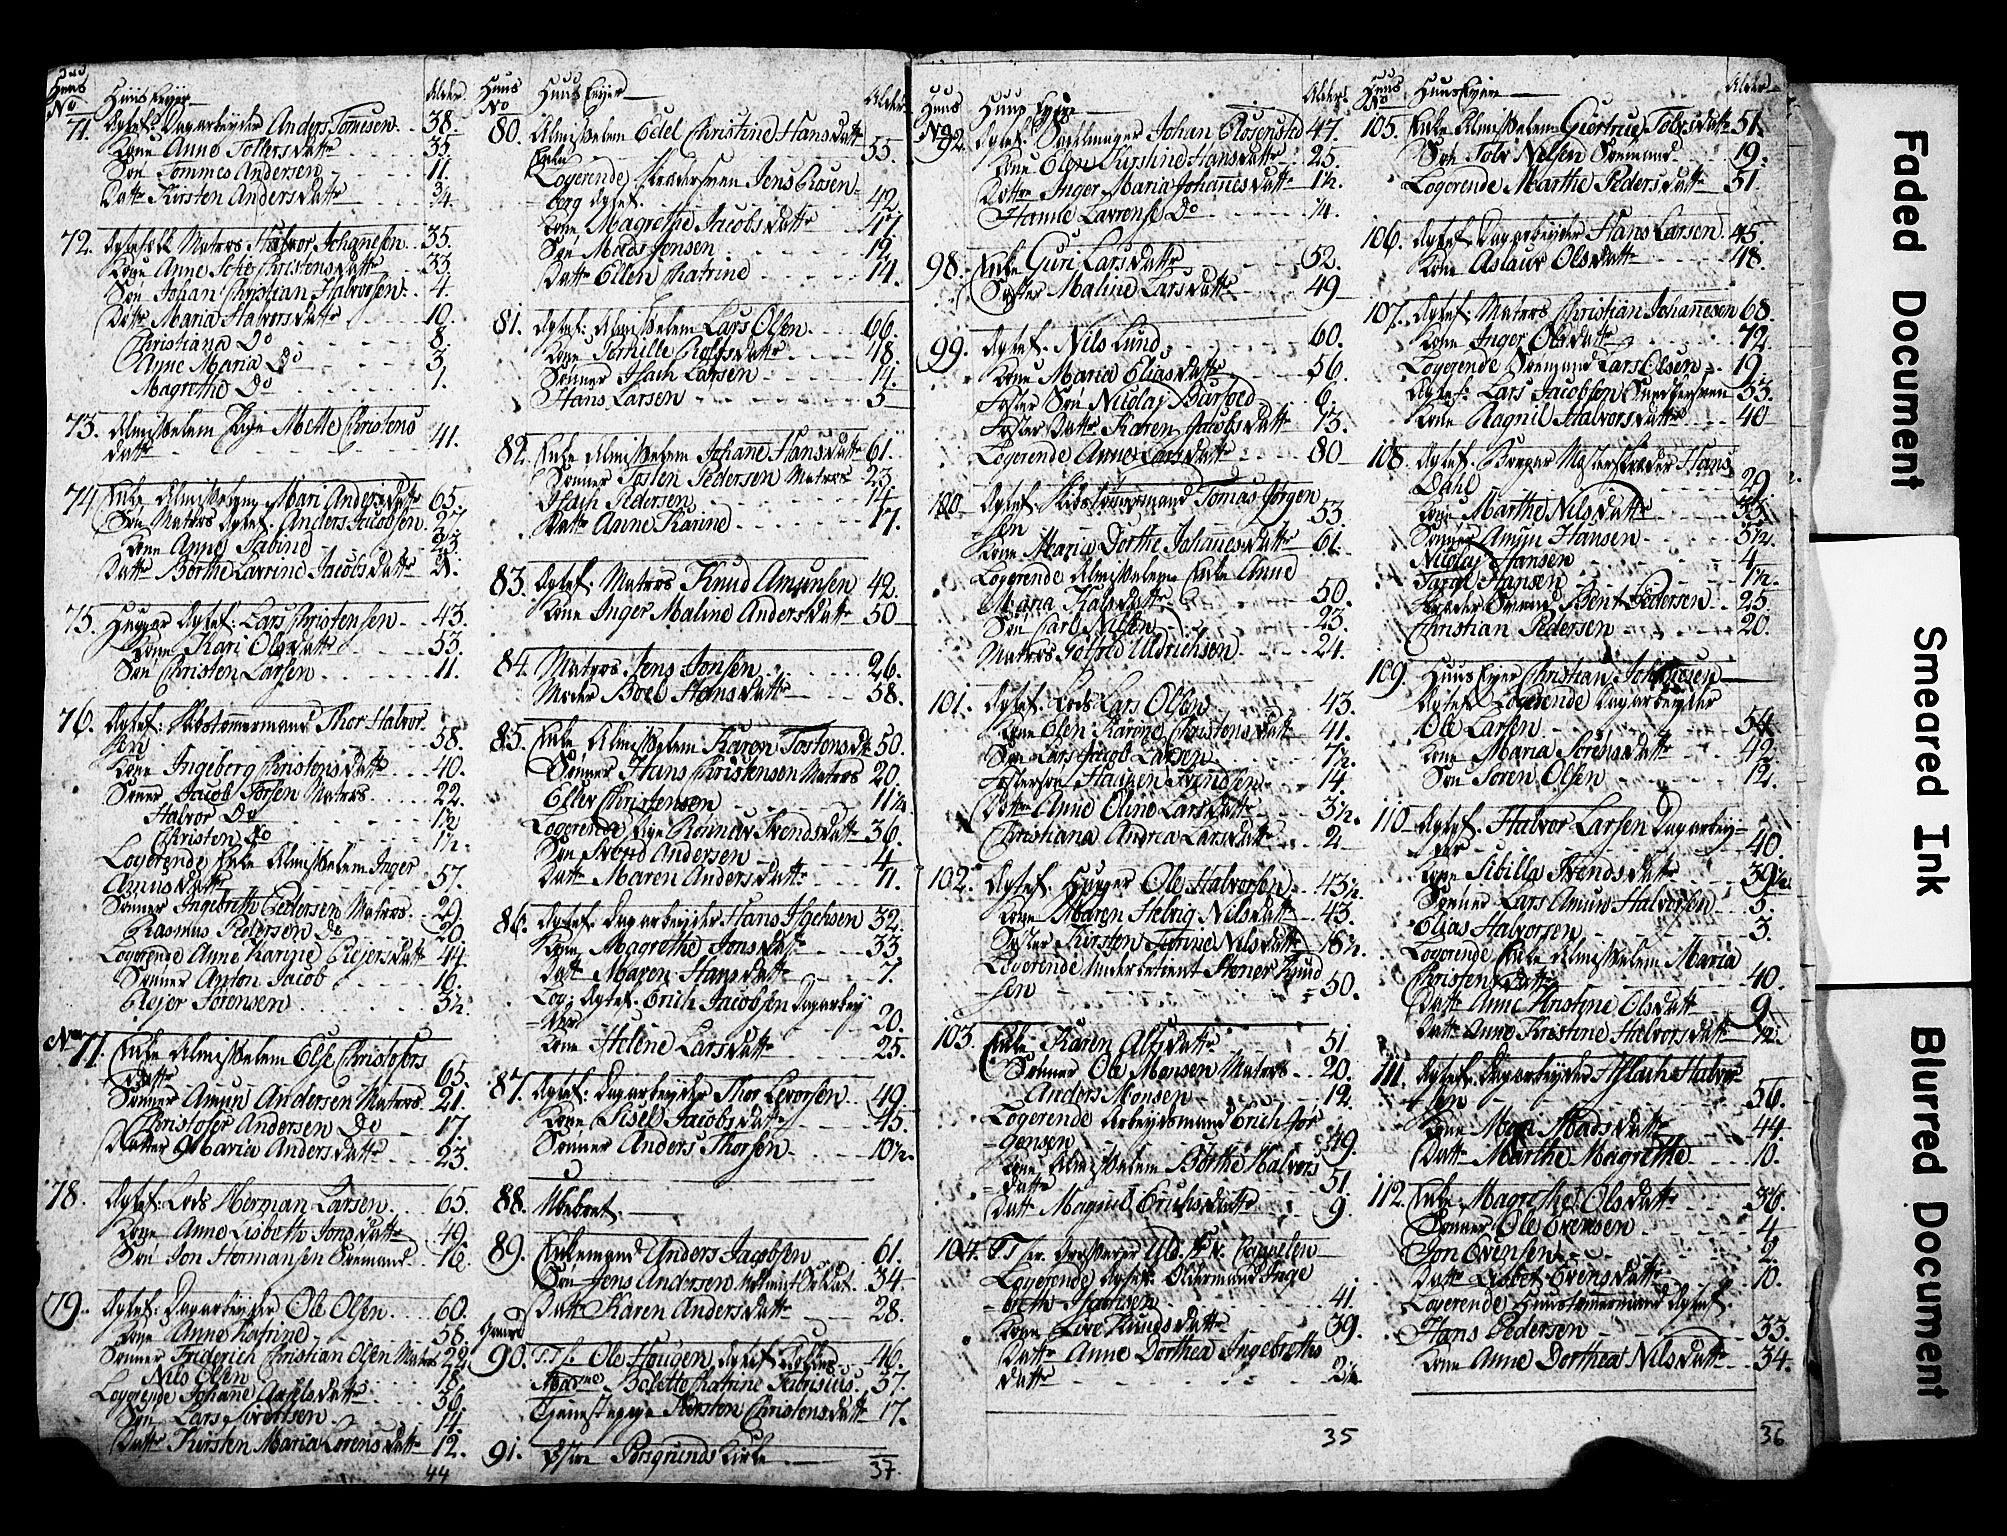 Huus No Huus Eyer Alder
71. Ægtef: Dagarbeyder Anders Tomesen 38.
Kone Anne Tollersdattr 35
Søn Tommes Andersen 11.
Dattr Kirsten Andersdattr 3/4.
72. Ægtefolk Matros Halvor Johanesen 35.
Kone Anne Sofie Christensdattr 33.
Søn Johan Christian Halvorsen 4.
Dattr Maria Halvorsdattr 10.
Christiana Do 8.
Anne Maria Do 3.
Magrethe Do 1.
73. Almisselem Pige Mette Christens
dattr 41.
74. Enke Almisselem Mari Andersdattr 65.
Søn Matros Ægtef. Anders Jacobsen 27
Kone Anne Sabine 23.
Dattr Borthe Lavrine Jacobsdattr 21.
75. Hugger Ægtef: Lars Christensen 43.
Kone Kari Olsdattr 53.
Søn Christen Larsen 11.
76. Ægtef: Skibstømermand Thor Halvor-
sen 58.
Kone Ingeborg Christensdattr 40.
Sønner Jacob Torsen Matros 22.
Halvor Do 12
Christen Do 1 1/2.
Logerende Enke Almisselem Inger
Amunsdattr 57.
Sønner Ingebrith Pedersen Matros 29.
Rasmus Pedersen Do 20
Logerende Anne Karine Reyersdattr 44
Sønner Anton Jacob 16.
Rejer Sørensen 3 1/2.
No 77. Enke Almisselem Else Christofers
dattr 65.
Sønner Amun Andersen Matros 21.
Christofer Andersen Do 17
Datter Maria Andersdattr 23.
78. Ægtef: Lods Herman Larsen 65.
Kone Anne Lisbeth Jonsdattr 49.
Søn Jon Hermansen Sømand 16.
79. Ægtef: Dagarbeyder Ole Olsen 60.
Kone Anne Katrine 58.
Sønner Friderich Christian Olsen Matros 22
Nils Olsen 18.
Logerende Johane 36.
Søn Lars Sivertsen 14.
Dattr Kirsten Maria Lorensdattr 12.
44
Huus No Huus Eyer Alder
80. Almisselem Edel Christine Hansdattr
Enke 55.
Logerende Skrædersvend Jens Rosen-
berg Ægtef. 42
Kone Magrethe Jacobsdattr 47.
Søn Mads Jensen 19.
Dattr Ellen Chatrine 14.
81. Ægtef: Almisselem Lars Olsen 66.
Kone Pernille Rolfsdattr 48.
Sønner Isach Larsen 14.
Hans Larsen 5
82. Enke Almisselem Johane Hansdattr 61.
Sønner Tosten Pedersen Matros 23.
Isach Pedersen 14.
Dattr Anne Karine 17.
83. Ægtef: Matros Knud Amunsen 42.
Kone Inger Maline Andersdattr 50
84. Matros Jens Jonsen 26.
Moder Boel Hansdattr 58.
85. Enke Almisselem Karen Tostensdtr 50.
Sønner Hans Christensen Matros 20.
Eller Christensen 11 1/2
Logerende Pige Rønnau Svendsdattr 36.
Søn Svend Andersen 4
Dattr Maren Andersdattr 11.
86. Ægtef: Dagarbeyder Hans Isachsen 32.
Kone Magrethe Jonsdattr 33.
Dattr Maren Hansdattr 7.
Log: Ægtef. Erich Jacobsen Dagarbey
der 20.
Kone Helene Larsdattr 25.
87. Ægtef: Dagarbeyder Thor Levorsen 49.
Kone Sisel Jacobsdattr 45.
Sønner Anders Thorsen 10 1/2.
88. Ubeboet.
89. Enkemand Anders Jacobsen 61.
Søn Jens Andersen 34
Dattr Karen Andersdattr 28.
Gaard
90. T.T Hr: Ole Hougen Ægtef. 46.
Madme Bolette Katrine Fabrisius 37.
Tjenestepige Kirsten Christensdattr 17.
91. Østre Porsgrunds Kirke
37.
Huus No Huus Eyere Alder.
92. Ægtef. Johan Rosensted 47.
Kone Olene Kirstine Hansdattr 25.
Dattr Inger Maria Johannesdattr 1 1/2.
Homle Lavrense Do 1/4.
98. Enke Guri Larsdattr 52.
Søster Maline Larsdattr 49
99. Ægtef. Nils Lund 60.
Kone Maria Eliasdattr 56.
Foster Søn Nicolaj Barfoed 6.
Foster Dattr Karen Jacobsdattr 13.
Logerende Anne Larsdattr 80
100 Ægtef. Skibstømmermand Tomas Jørgen
sen 53.
Kone Maria Dorthe Johannesdattr 61.
Logerende Almisselem Enke Anne
Maria 50.
Søn Carl Nilsen 23.
Matros Uldrichsen 21.
101. Ægtef. Lods Lars Olsen 43.
Kone Olen Karine Christensdattr 41.
Søn Lars Jacob Larsen 7 1/2
Fostersøn Haagen Svendsen 14
Dattr Anne Oline Larsdattr 3 1/2.
Christiana Andrea Larsdattr 2
102. Ægtef. Hugger Ole Halvorsen 43 1/2.
Kone Maren Helvig Nilsdattr 43.
Søster Kirsten Torine Nilsdattr 18 1/2.
Logerende Underbetient Stener Knud
sen 50.
103. Enke Karen Alfsdattr 51
Sønner Ole Monsen Matros 20.
Anders Monsen 12.
Logerende Arbeydsmand Erich Jør
gensen 49.
Kone Almisselem Borthe Halvors
dattr 51
Dattr Magnil Erichsdattr 9.
104. T.T Hr. v: Cappelen
Logerende Ægtef: Oldermand Inge
breth Isachsen 41.
Kone Live Knudsdattr 39.
Dattr Anne Dorthea Ingebreths
dattr 2 1/2
35
Huus No Huus Eyere Alder
105. Enke Almisselem Giertrud Tobiesdattr 51.
Søn Tobi Nilsen Sømand 19.
Logerende Marthe Pedersdattr 51
106. Ægtef. Dagarbeyder Hans Larsen 45.
Kone Aslaug Olsdattr 48.
107. Ægtef. Matros Christian Johannesen 68.
Kone Inger Olsdattr 72.
Logerende Sømand Lars Olsen 19.
Ægtef: Lars Jacobsen 53.
Kone Ragnil Halvorsdattr 40
108. Ægtef. Borger Hans
Dahl 29
Kone Marthe Nilsdattr 33.
Sønner Amun Hansen 5 1/2.
Nicolaj Hansen 4
Taral Hansen 1 1/2.
Svend Bent Pedersen 25.
Christian Pedersen 20.
109. Huus Eyer Christian Johannesen
Ægtef. Logerende Dagarbeyder
Ole Larsen 54
Kone Maria Sørensdattr 42.
Søn Søren Olsen 12.
110 Ægtef. Halvor Larsen Dagarbey-
der 40.
Kone Sibilla Svendsdattr 39 1/2.
Sønner Lars Amun Halvorsen 5
Elias Halvorsen 3.
Logerende Enke Almisselem Maria
Christensdattr 40.
Dattr Anne Kirstine Olsdattr 9
Dattr Anne Kirstine Halvorsdattr 1/2.
111. Ægtef. Dagarbeyder Aslach Halvor
sen 56.
Kone Mari Madsdattr 44.
Dattr Marthe Magrethe 10.
112. Enke Magrethe Olsdattr 36.
Sønner Ole Evensen 4
Jon Evensen 2.
Dattr Lisbet Evensdattr 10.
Logerende Huustømmermand Ægtef.
Hans Pedersen 33.
Kone Anne Dorthea Nilsdattr 34.
36
Faded Document
Smeared Ink
Blurred Document